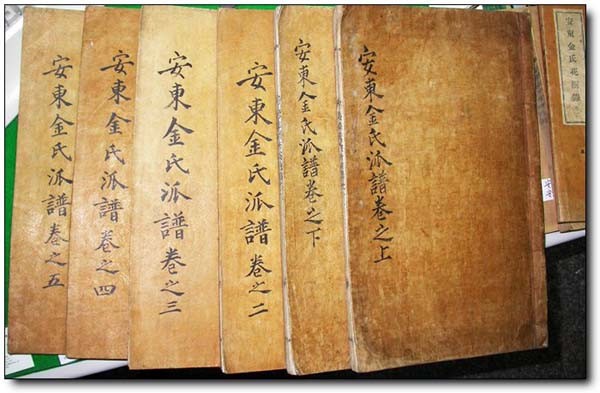 安東金氏派譜卷之上
安東金氏派譜卷之下
安東金氏派譜卷之二
安東金氏派譜卷之三
安東金氏派譜卷之四
安東金氏派譜卷之五
安東金氏花樹譜